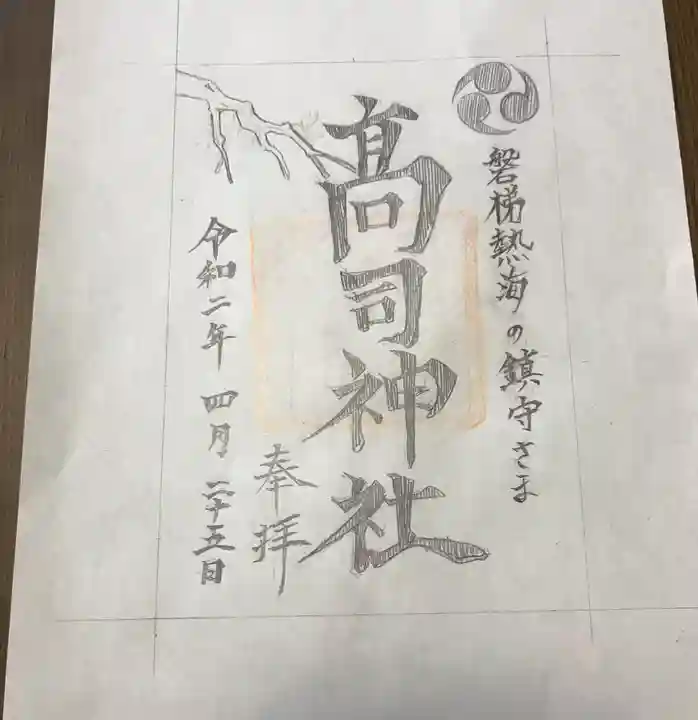 磐梯熱海の鎮守さま
髙司神社
奉拝
令和二年 四月 二十五日